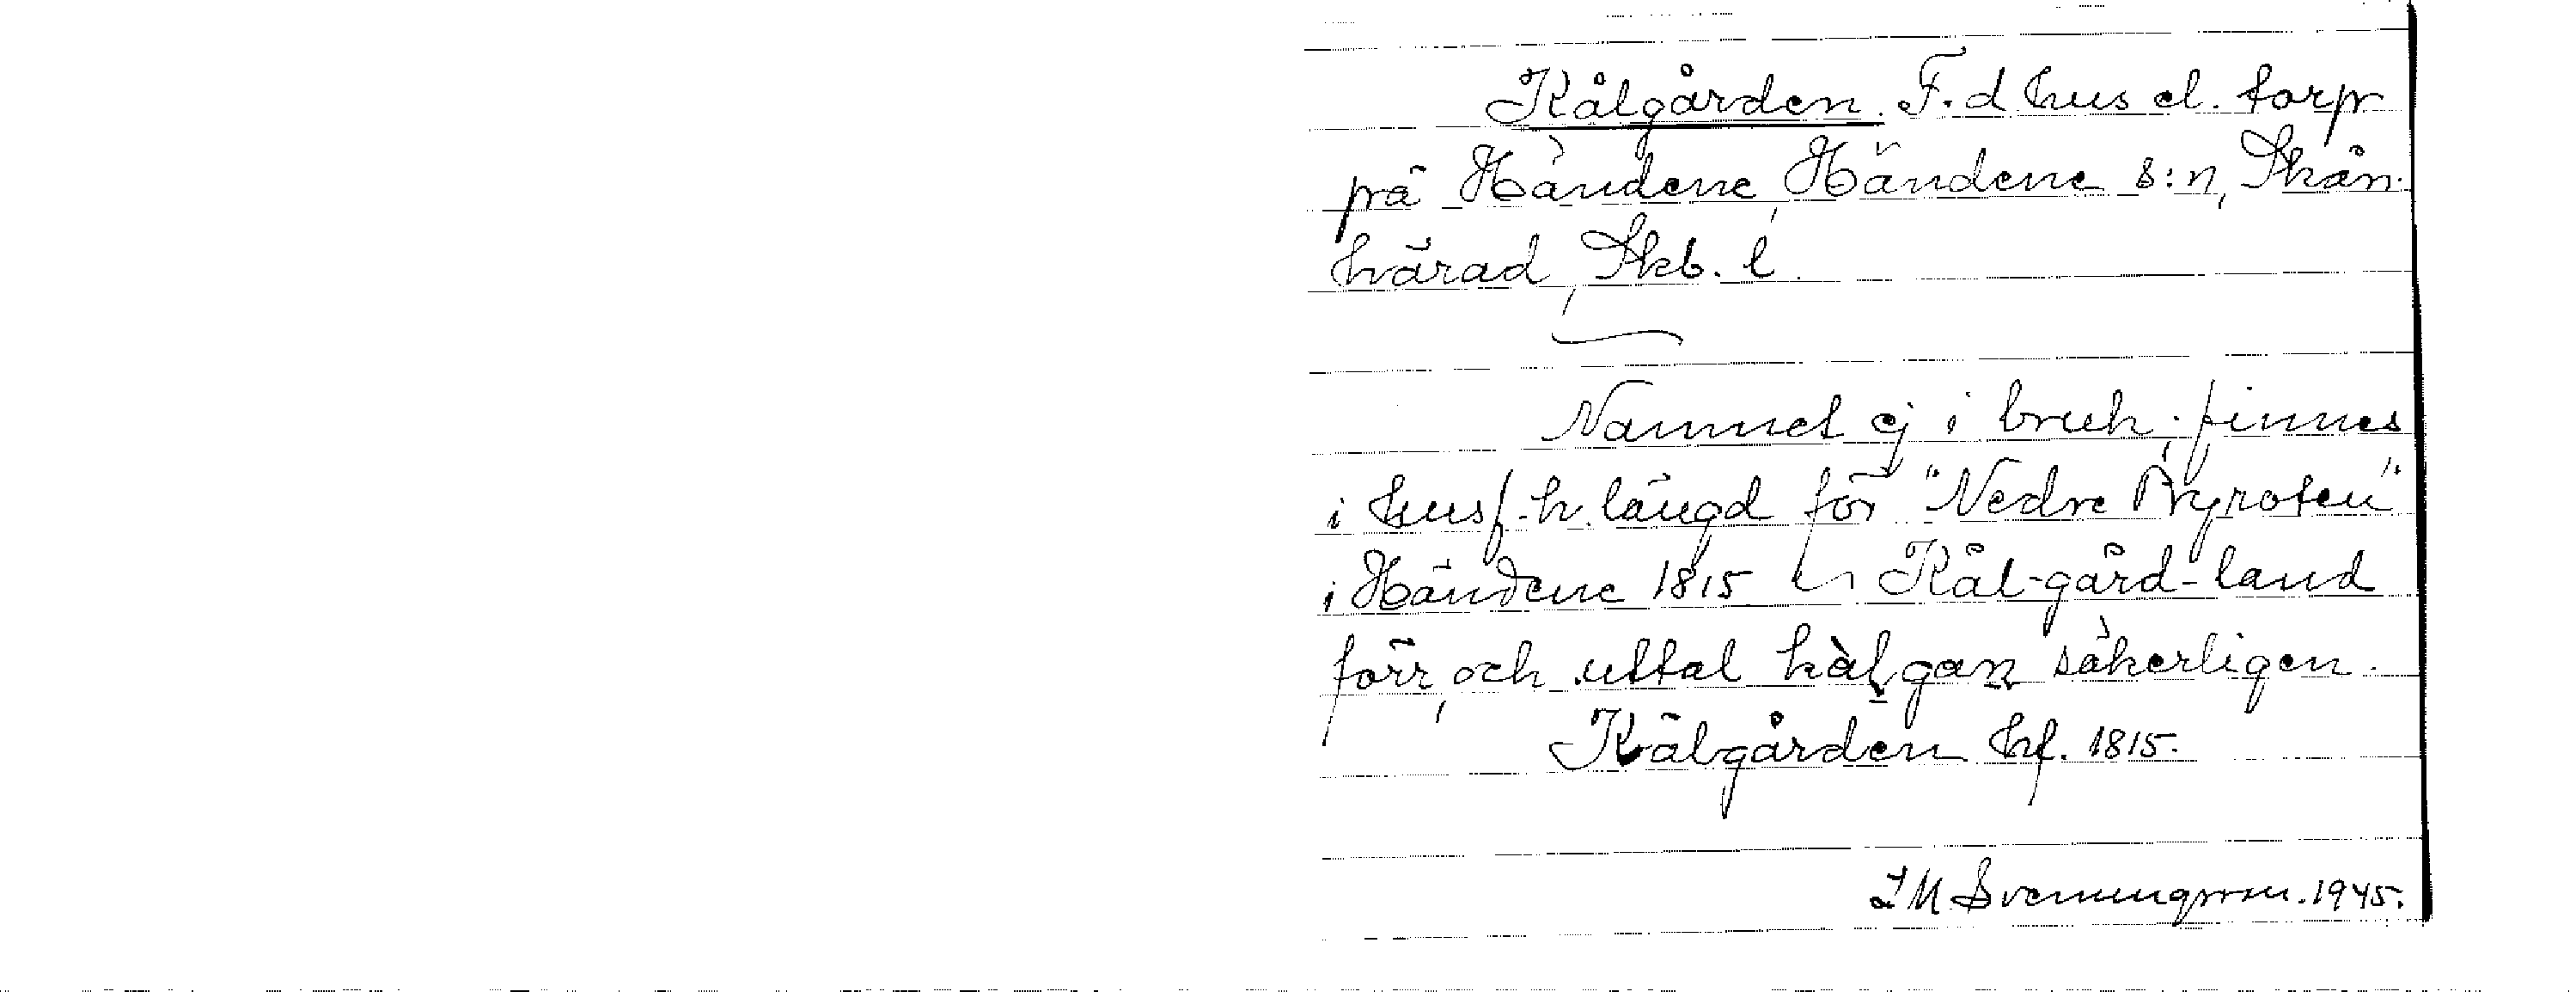 Kålgården. F. d hus el. torp
på Händene, Händene s:n, Skån.
härad, Skb. l.
Namnet ej i bruk; finnes
i husf.-h. längd för "Nedre Ryroten"
i Händene 1815 Kål-gård-land
förr, och uttal kàl̨gaṉ säkerligen.
Kålgården hf. 1815.
1945.